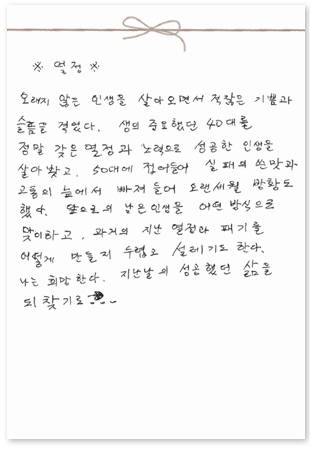 ※ 열정 ※
오래지 않은 인생을 살아오면서 적잖은 기쁨과
슬픔을 적었다. 생의 중요했던 40대를
정말 갖은 열정과 노력으로 성공한 인생을
살아봤고, 50대에 접어들어 실패의 쓴맛과
고통의 늪에서 빠져들어 오랜세월 방황도
했다. 앞으로의 남은인생을 어떤 방식으로
맞이하고, 과거의 지난 열정과 패기를
어떻게 만들지 두렵고 설레기도 한다.
나는 희망한다. 지난날의 성공했던 삶을
되찾기로